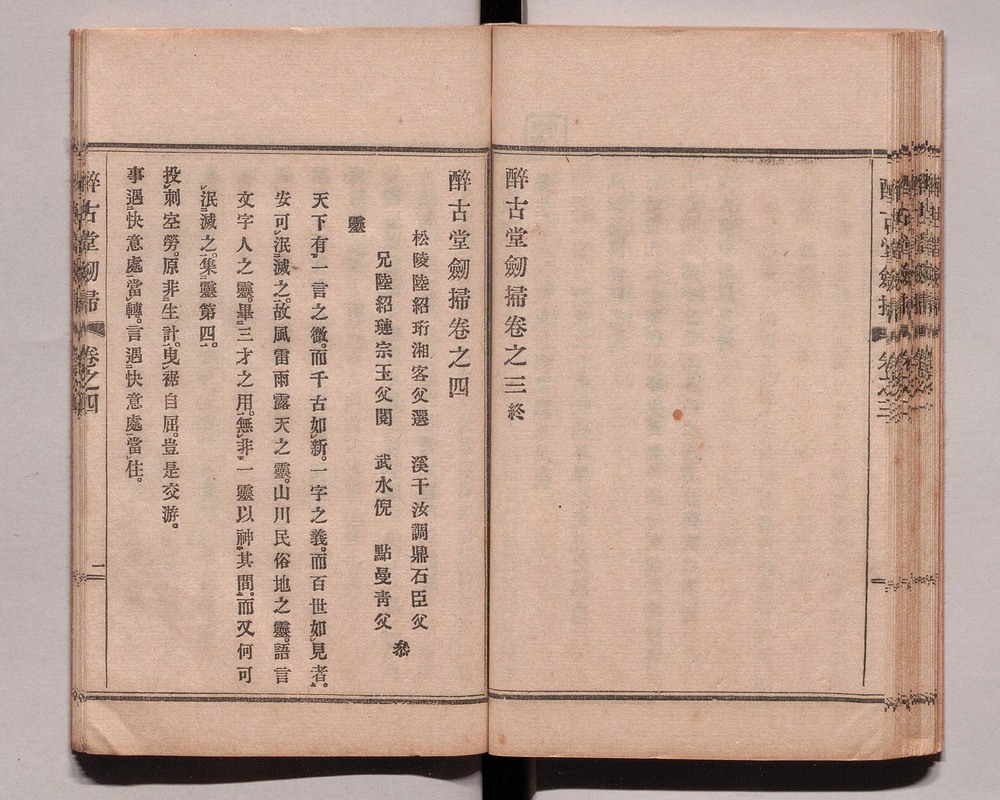 醉古堂劒掃卷之三終
醉古堂劒掃卷之四
松陵陸紹珩湘客父選　溪干汝調鼎石臣父
兄陸紹璉宗玉父閱　武水倪　點曼青父
叅
靈
天下有一言之微。而千古如新。一字之義。而百世如見者。
安可泯滅之。故風雷雨露天之靈。山川民俗地之靈。語言
文字人之靈。畢三才之用。無非一靈以神其間。而又何可
泯滅之。集靈第四。
投刺空勞。原非生計。曳裾自屈。豈是交游。
事遇快意處當轉。言遇快意處當住。
醉古堂劒掃
卷之四
一